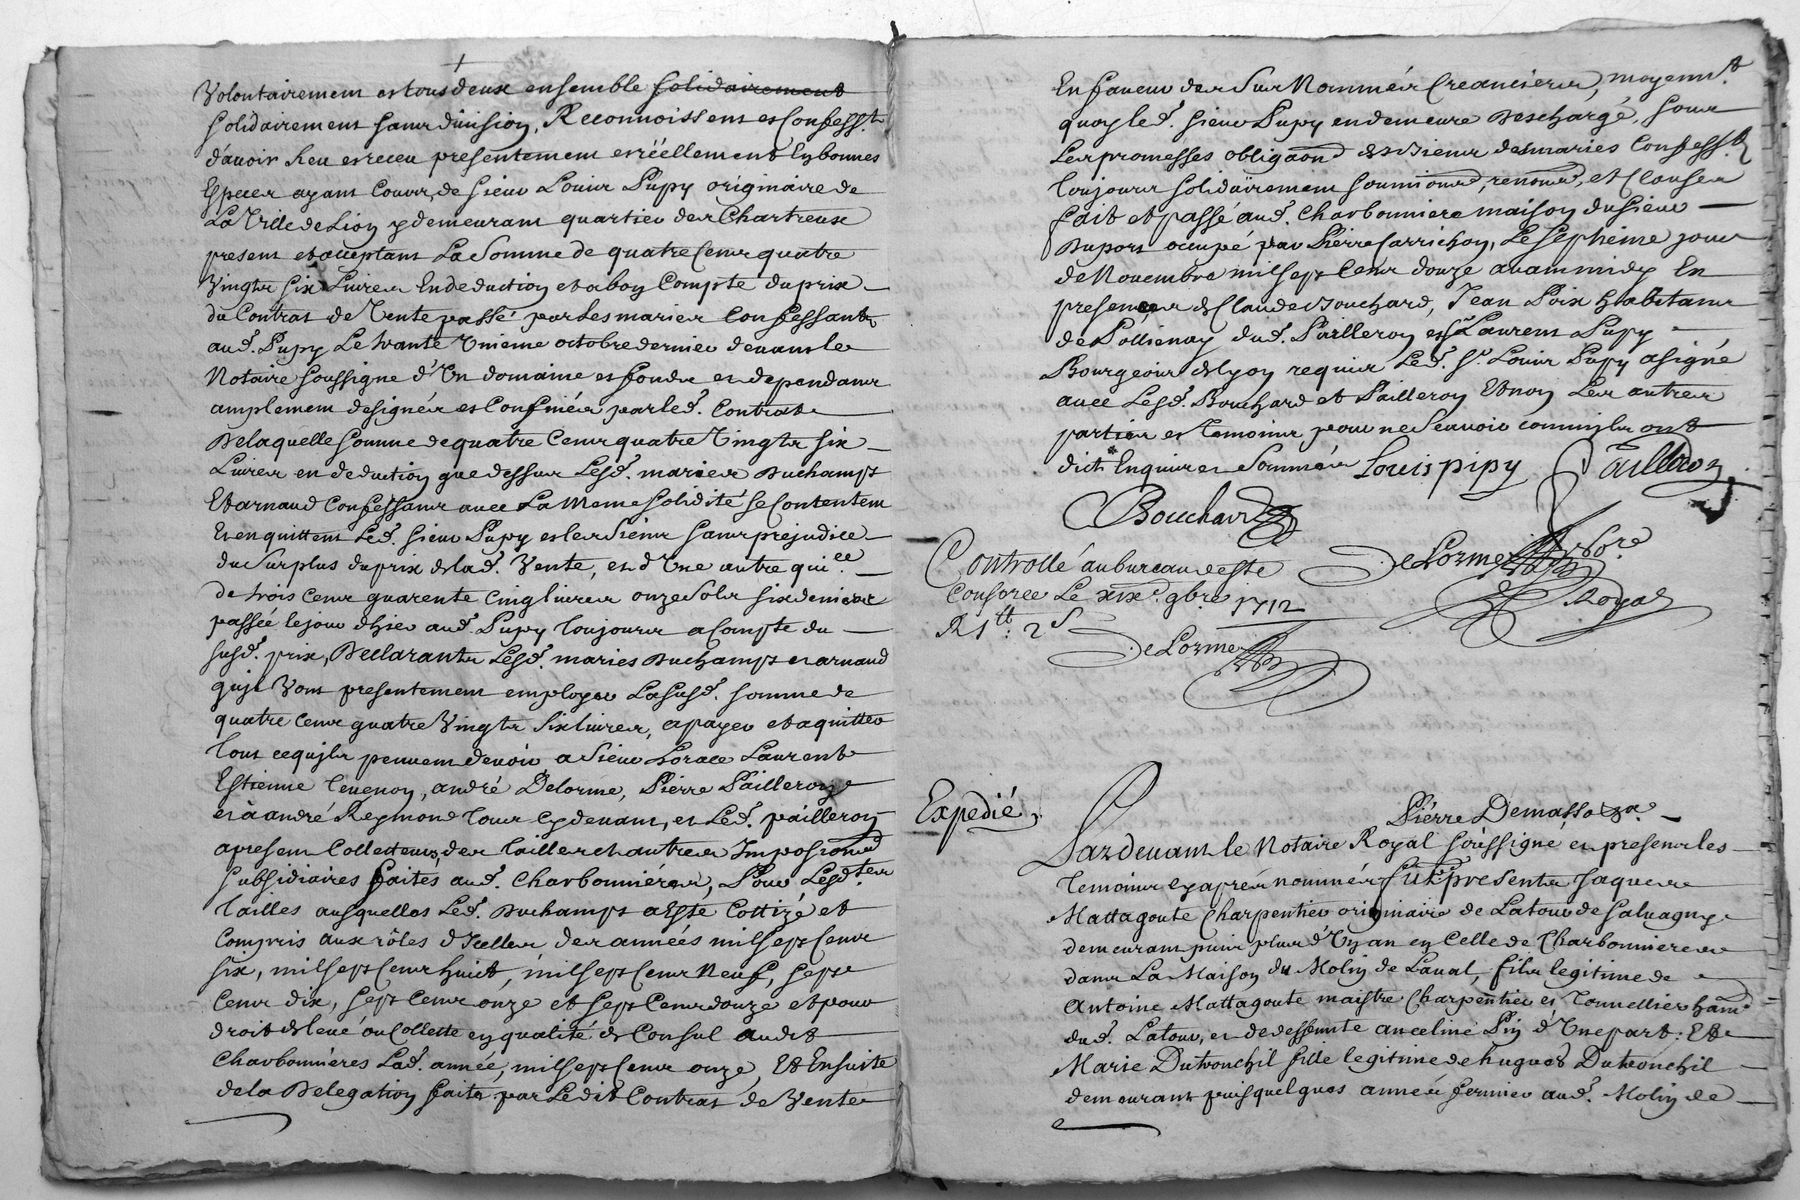 Volontairement et tous deux ensemble solidairement
solidairement sans division, Reconnoissent et Confess.t
d'avoir heu et receu presentement et réellement En bonnes
Especes ayant Cours, de sieur Louis Pupy originaire de
La Ville de Lion y demeurant quartier des Chartreux
present et acceptant La Somme de quatre Cens quatre
Vingts six Livres En deduction et a bon Compte du prix
du Contrat de Vente passé par Les maries Confessants
aud. Pupy Le trante Unieme octobre dernier devant le
Notaire soussigne d'Un domaine et fonds en dependans
amplement designés et Confinés par led. Contrat
De laquelle somme de quatre Cens quatre Vingts six
Livres en deduction que dessus Lesd. maries Duchamps
Et arnaud Confessans avec La meme solidité se Contentent
Et en quittent Led. sieur Pupy et les siens sans prejudice
du Surplus du prix de lad. Vente, et d'Une autre qui.ce
de trois Cens quarente Cinq livres onze Sols six deniers
passée le jour d'hier aud. Pupy toujours a Compte du
susd. prix, Declarants Lesd. maries Duchamps et arnaud
qu'jls Vont presentement employer La susd. somme de
quatre Cens quatre Vingts Six livres, a payer et aquitter
tout ce qu'jls peuvent devoir a Sieur Horace Laurent
Estienne Tevenon, andré Delorme, Pierre Pailleron
et à andré Reymond tous Cy devant, et Led. pailleron
a present Collecteurs des tailles et autres Imposiond
subsidiaires faites aud. Charbonnieres, Pour Lesd.tes
tailles ausquelles Led. Duchamps a Esté Cottizé et
Compris aux rôles d'Icelles des années mil sept Cens
six, mil sept Cens huict, mil sept Cens Neuf, sept
Cens dix, sept Cens onze et sept Cens douze et pour
droit de leve ou Collette en qualité de Consul audit
Charbonniéres Lad. année, mil sept Cens onze, Et Ensuite
de la Delegation faite par Ledit Contrat de Vente
En faveur des Sus Nommés Creanciers, moyenn.t
quoy led. sieur Pupy en demeure Deschargé, sous
Les promesses obligaond desd.
toujours solidairement soumiond, renond, et Clauses
fait et passé aud. Charbonniere maison du sieur
Duport occupé par Pierre Carrichon, Le septiéme jour
de Novembre mil sept Cens douze avant midy En
presences de Claude Bouchard, Jean Poix habitans
de Pollienay dud. Pailleron et Sr. Laurent Pupy
Bourgeois de Lyon requis Led. Sr. Louis Pupy a signé
avec Lesd. Bouchard et Pailleron Et non Les autres
parties et temoins pour ne Scavoir comm'jls ont
dict Enquis et Sommés Louis pipy Pailleron
Bouchard
Controllé au bureau
Le xixe. 9bre 1712
R 1tt: 2s
DeLorme
DeLorme
Nore
Royal
Expedié
Piérre Demasso
Pardevant le Notaire Royal soussigné en presen les
temoins cy apres nommés fut présents Jaques
Mattagoute Charpentier originaire de Latour de Salvagny
demeurant puis plus d'Un an en Celle de Charbonnieres
dans La Maison du Molin de Laval, fils legitime de
Antoine Mattagoute maistre Charpentier et tonnellier ham
dud. Latour, et de deffunte anceline Pin d'Une part: Et
Marie Dutronchil fille legitime de hugues Dutronchil
demeurant puis quelques années fermier aud. Molin de